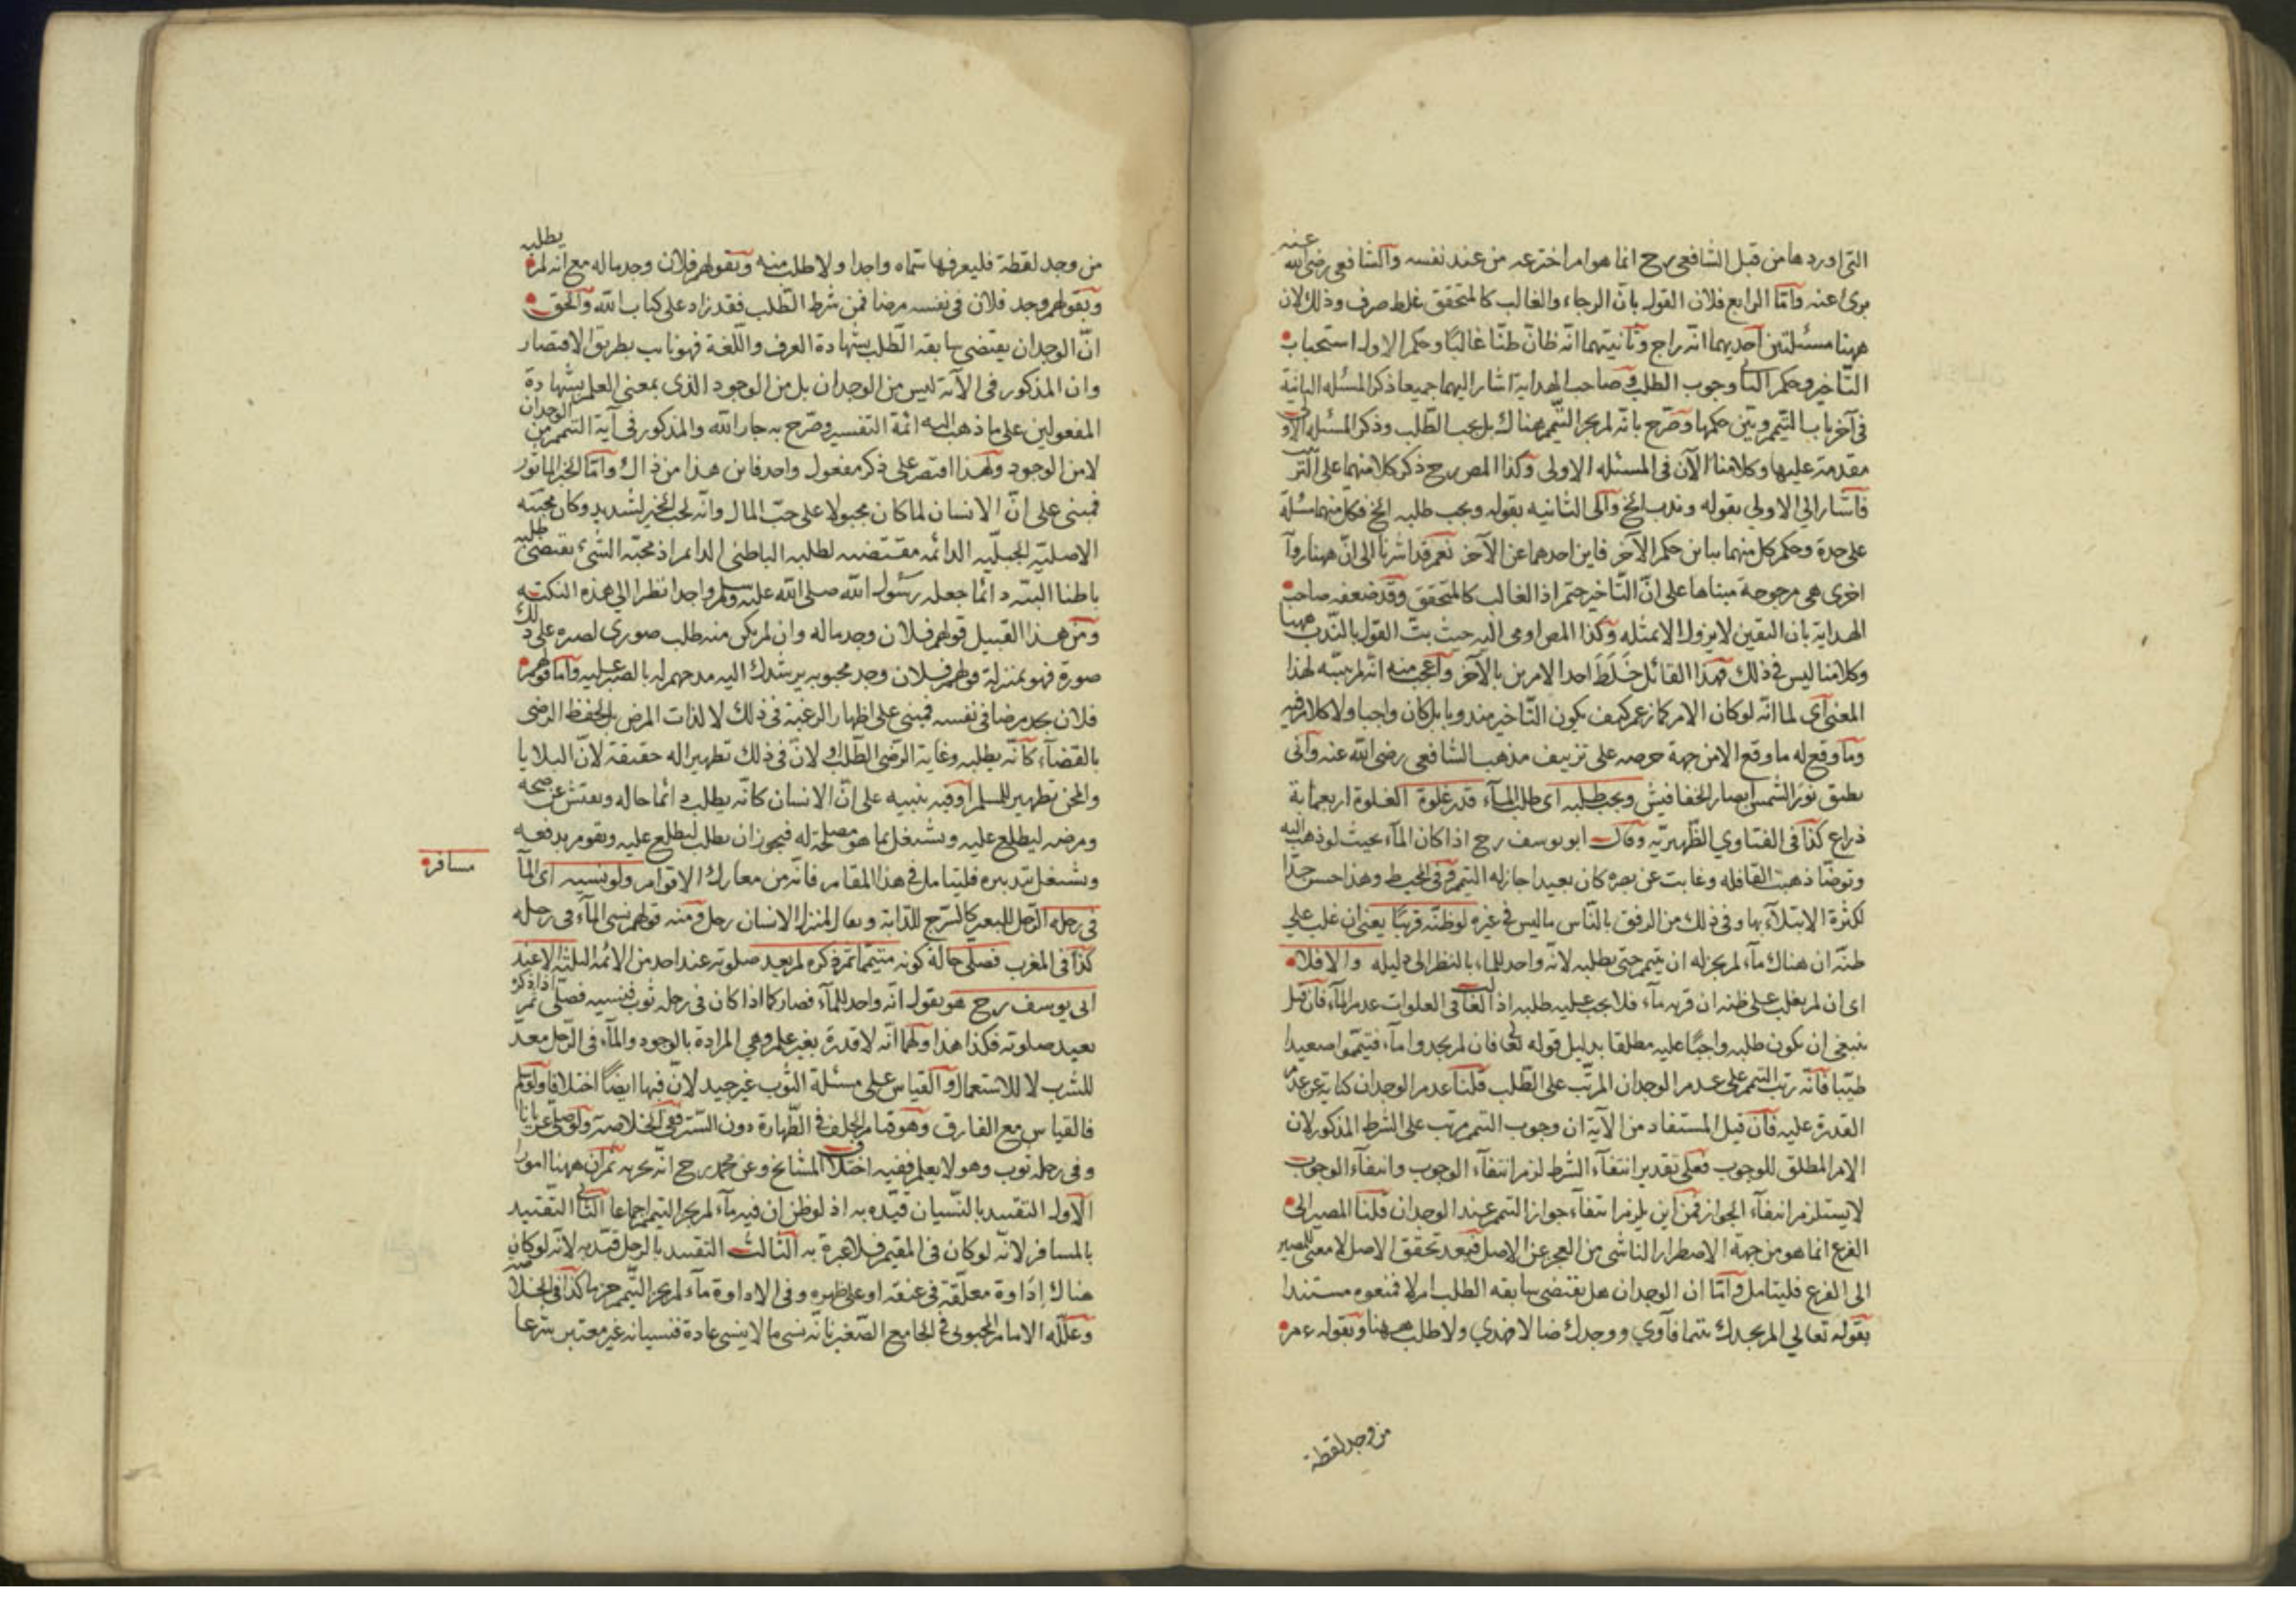 التى اوردها من قبل الشافعى رح انما هو امر اخترعه من عند نفسه والشافعى رضى الله عنه
برئ عنه واما الرابع فلان القول بان الرجاء والغالب كالمتحقق غلط صرف وذلك لان
ههنا مسئلتين احديهما انه راج وثانيتهما انه ظان ظنا غالبا وحكم الاول استحباب
التاخير وحكم الثانى وجوب الطلب وصاحب الهداية اشار اليهما جميعا ذكر المسئله الثانية
فى آخر باب التيمم وبين حكمها وصرح بانه لم يجز التيمم هناك بل يجب الطلب وذكر المسئلة الاولى
مقدمة عليها وكلامنا الآن فى المسئله الاولى وكذا المص رح ذكر كلا منهما على الترتيب
فاشار الى الاولى بقوله وندب الخ والى الثانيه بقوله ويجب طلبه الخ فكل منهما مسئلة
على حدة وحكم كل منهما يباين حكم الآخر فاين احدهما عن الآخر نعم قد اشرنا الى ان ههنا رواية
اخرى هى مرجوحة مبناها على ان التاخير حتم اذ الغالب كالمتحقق وقد ضعفه صاحب
الهداية بان اليقين لا يزول الا بمثله وكذا المص اومى اليه حيث بت القول بالندب ههنا
وكلامنا ليس فى ذلك فهذا القائل خلط احد الامرين بالآخر واعجب منه انه لم ينبه لهذا
المعنى اى لما انه لو كان الامر كما زعم كيف يكون التاخير مندوبا بل كان واجبا ولا كلام فيه
وما وقع له ما وقع الا من جهة حرصه على تزييف مذهب الشافعى رضى الله عنه وانى
يطيق نور الشمس ابصار الخفافيش ويجب طلبه اى طلب الماء قدر غلوة الغلوة اربعمائة
ذراع كذا فى الفتاوي الظهيريه وقال ابو يوسف رح اذا كان الماء بحيث لو ذهب اليه
وتوضأ ذهبت القافله وغابت عن بصره كان بعيدا جاز له التيمم وفى المحيط وهذا حسن جدا
لكثرة الابتلاء بها وفى ذلك من الرفق بالناس ما ليس فى غيره لو ظنه قريبا يعنى ان غلب على
ظنه ان هناك ماء لم يجز له ان يتيمم حتى يطلبه لانه واجد للماء بالنظر الى دليله والا فلا
اى ان لم يغلب على ظنه ان قربه ماء فلا يجب عليه طلبه اذ الغالب فى الفلوات عدم الماء فان قيل
ينبغى ان يكون طلبه واجبا عليه مطلقا بدليل قوله تعالى فان لم يجدوا ماء فتيمموا صعيدا
طيبا فانه رتب التيمم على عدم الوجدان المرتب على الطلب قلنا عدم الوجدان كناية عن عدم
القدرة عليه فان قيل المستفاد من الآية ان وجوب التيمم مرتب على الشرط المذكور لان
الامر المطلق للوجوب فعلى تقدير انتفاء الشرط لزم انتفاء الوجوب وانتفاء الوجوب
لا يستلزم انتفاء الجواز فمن اين يلزم انتفاء جواز التيمم عند الوجدان قلنا المصير الى
الفرع انما هو من جهة الاضطرار الناشى من العجز عن الاصل فبعد تحقق الاصل لا معنى للمصير
الى الفرع فليتامل واما ان الوجدان هل يقتضى سابقه الطلب ام لا فمنعوه مستندا
بقوله تعالى الم يجدك يتيما فآوي ووجدك ضالا فهدي ولا طلب ههنا وبقوله عم
من وجد لقطة
من وجد لقطة فليعرفها سماه واجدا ولا طلب منه وبقولهم فلان وجد ماله مع انه لم يطلبه
وبقولهم وجد فلان فى نفسه مرضا فمن شرط الطلب فقد زاد على كتاب الله والحق
ان الوجدان يقتضى سابقه الطلب بشهادة العرف واللغة فهو ناب بطريق الاقتصار
وان المذكور فى الآية ليس من الوجدان بل من الوجود الذى بمعنى العلم بشهادة
المفعولين على ما ذهب اليه ائمة التفسير وصرح به جار الله والمذكور فى آية التيمم من الوجدان
لا من الوجود ولهذا اقتصر على ذكر مفعول واحد فاين هذا من ذاك واما الخبر الماثور
فمبنى على ان الانسان لما كان مجبولا على حب المال وانه لحب الخير لشديد وكان محبته
الاصليه الجبليه الدائمه مقتضيه لطلبه الباطنى الدائم اذ محبة الشئ يقتضى طلبه
باطنا البته دائما جعله رسول الله صلى الله عليه وسلم واجدا نظرا الى هذه النكته
ومن هذا القبيل قولهم فلان وجد ماله وان لم يكن منه طلب صورى لصره على ذلك
صورة فهو بمنزلة قولهم فلان وجد محبوبه يرشدك اليه مدحهم له بالصبر عليه واما قولهم
فلان يجد مرضا فى نفسه فمبنى على اظهار الرغبة فى ذلك لا لذات المرض بل لحفظ الرضى
بالقضاء كانه يطلبه وغاية الرضى الطلب ولان فى ذلك تطهيرا له حقيقة لان البلايا
والمحن تطهير للمسلم او فيه تنبيه على ان الانسان كانه يطلب دائما حاله ويفتش عن صحته
ومرضه ليطلع عليه ويشتغل بما هو مصلحة له فيجوز ان يطلب ليطلع عليه ويقوم بدفعه
ويشتغل بتدبيره فليتامل فى هذا المقام فانه من معارك الاقوام ولو نسيه اى الماء
مسافر
فى رحله الرحل للبعير كالسرج للدابة ويقال لمنزل الانسان رحل ومنه قولهم نسى الماء فى رحله
كذا فى المغرب فصلى حالة كونه متيمما ثم ذكره لم يعد صلوته عند احد من الائمه الثلثه الا عند
ابى يوسف رح هو يقول انه واجد للماء فصار كما اذا كان فى رحله ثوب فنسيه فصلى ثم اذا ذكره
يعيد صلوته فكذا هذا ولهما انه لا قدرة بغير علم وهي المرادة بالوجود والماء فى الرحل معد
للشرب لا للاستعمال والقياس على مسئلة الثوب غير جيد لان فيها ايضا اختلافا ولو سلم
فالقياس مع الفارق وهو قيام الخلف فى الطهارة دون الستر ففى الخلاصة ولو صلى عريانا
وفى رحله ثوب وهو لا يعلم ففيه اختلاف المشايخ وعن محمد رح انه يجزيه ثم ان ههنا امورا
الاول التقييد بالنسيان قيده به اذ لو ظن ان فنى ماء لم يجز التيمم اجماعا الثانى التقييد
بالمسافر لانه لو كان فى المقيم فلا عبرة به الثالث التقييد بالرحل قيد به لانه لو كان
هناك إداوة معلقة فى عنقه او على ظهره وفى الاداوة ماء لم يجز التيمم كذا فى الخلاصة
وعلله الامام المحبوبى فى الجامع الصغير بانه نسى ما لا ينسى عادة فنسيانه غير معتبر شرعا